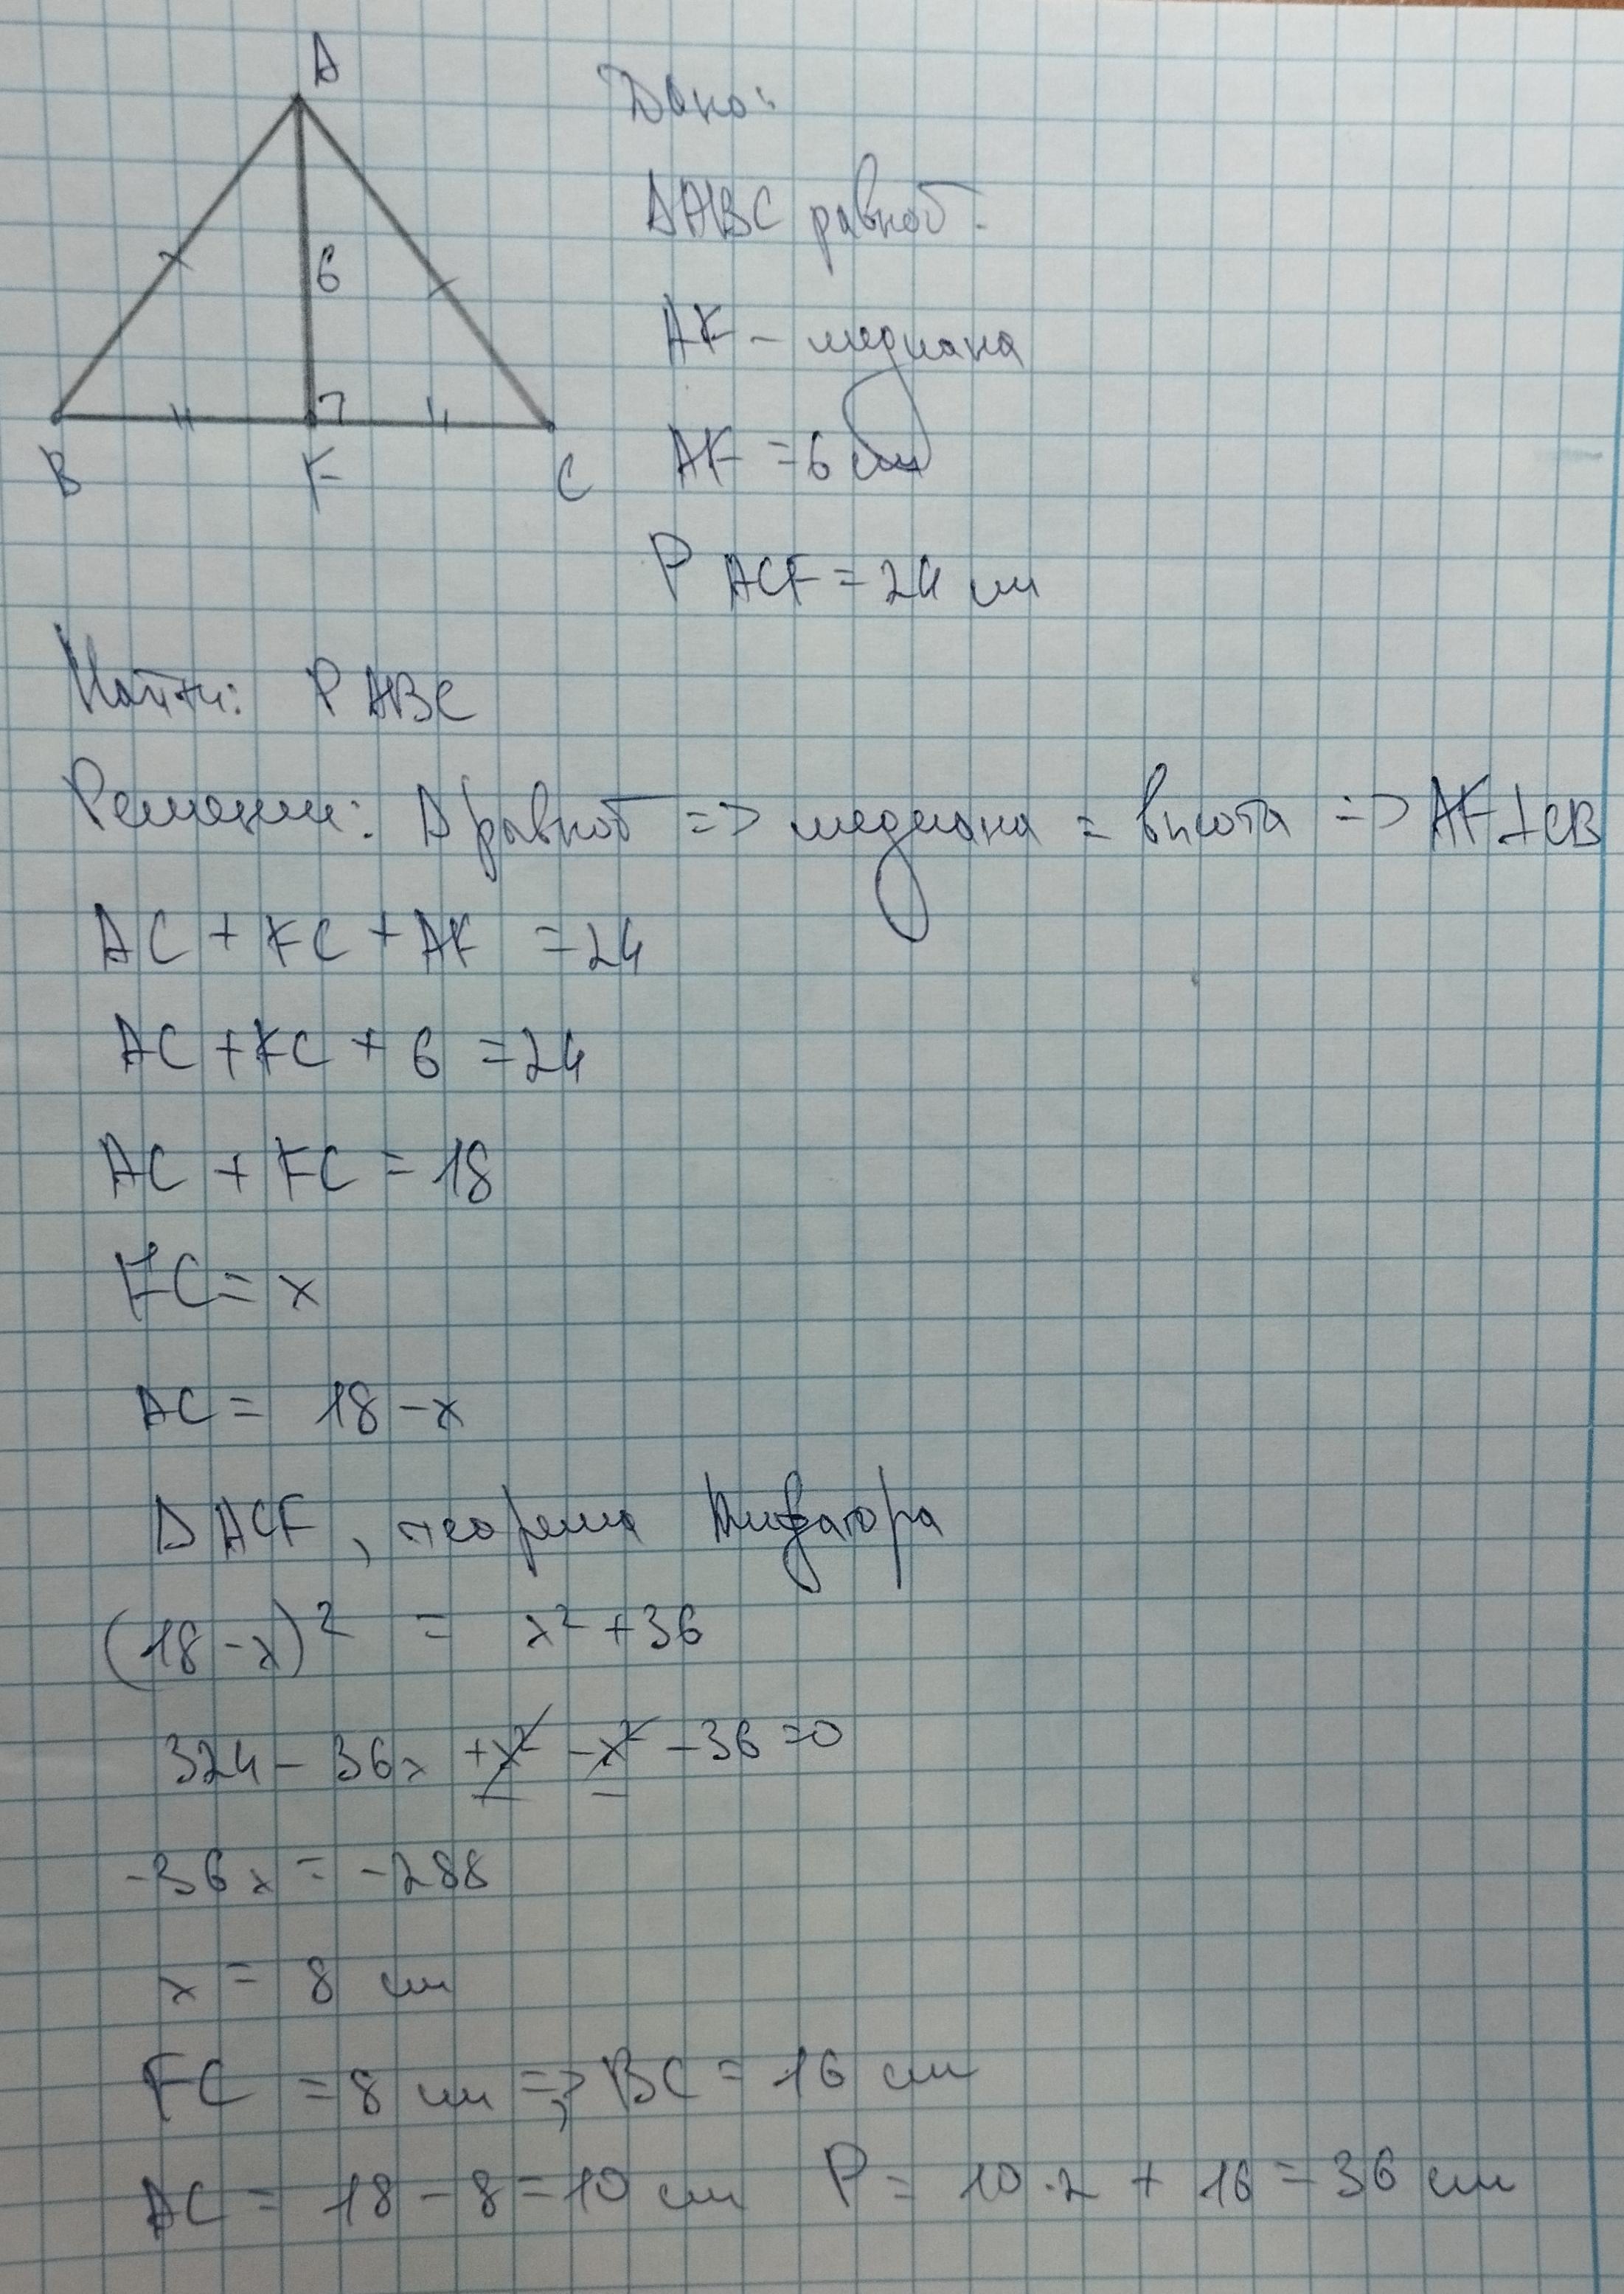 A
6
B
F
C
Дано:
ΔABC равноб.
AF - медиана
AF = 6 см
P ACF = 24 см
Найти: P ABC
Решение: Δ равноб => медиана = высота => AF ⊥ CB
AC + FC + AF = 24
AC + FC + 6 = 24
AC + FC = 18
FC = x
AC = 18 - x
Δ ACF, теорема Пифагора
(18 - x)² = x² + 36
324 - 36x + x² - x² - 36 = 0
-36x = -288
x = 8 см
FC = 8 см => BC = 16 см
AC = 18 - 8 = 10 см P = 10 · 2 + 16 = 36 см